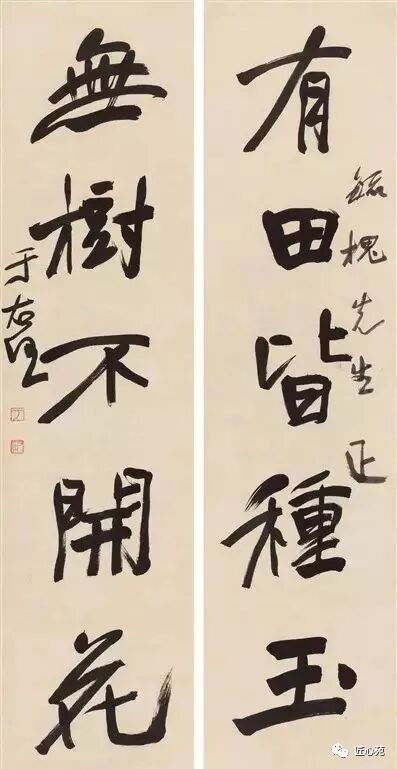 毓槐先生正
有田皆種玉
無樹不開花
于右任
匠心苑